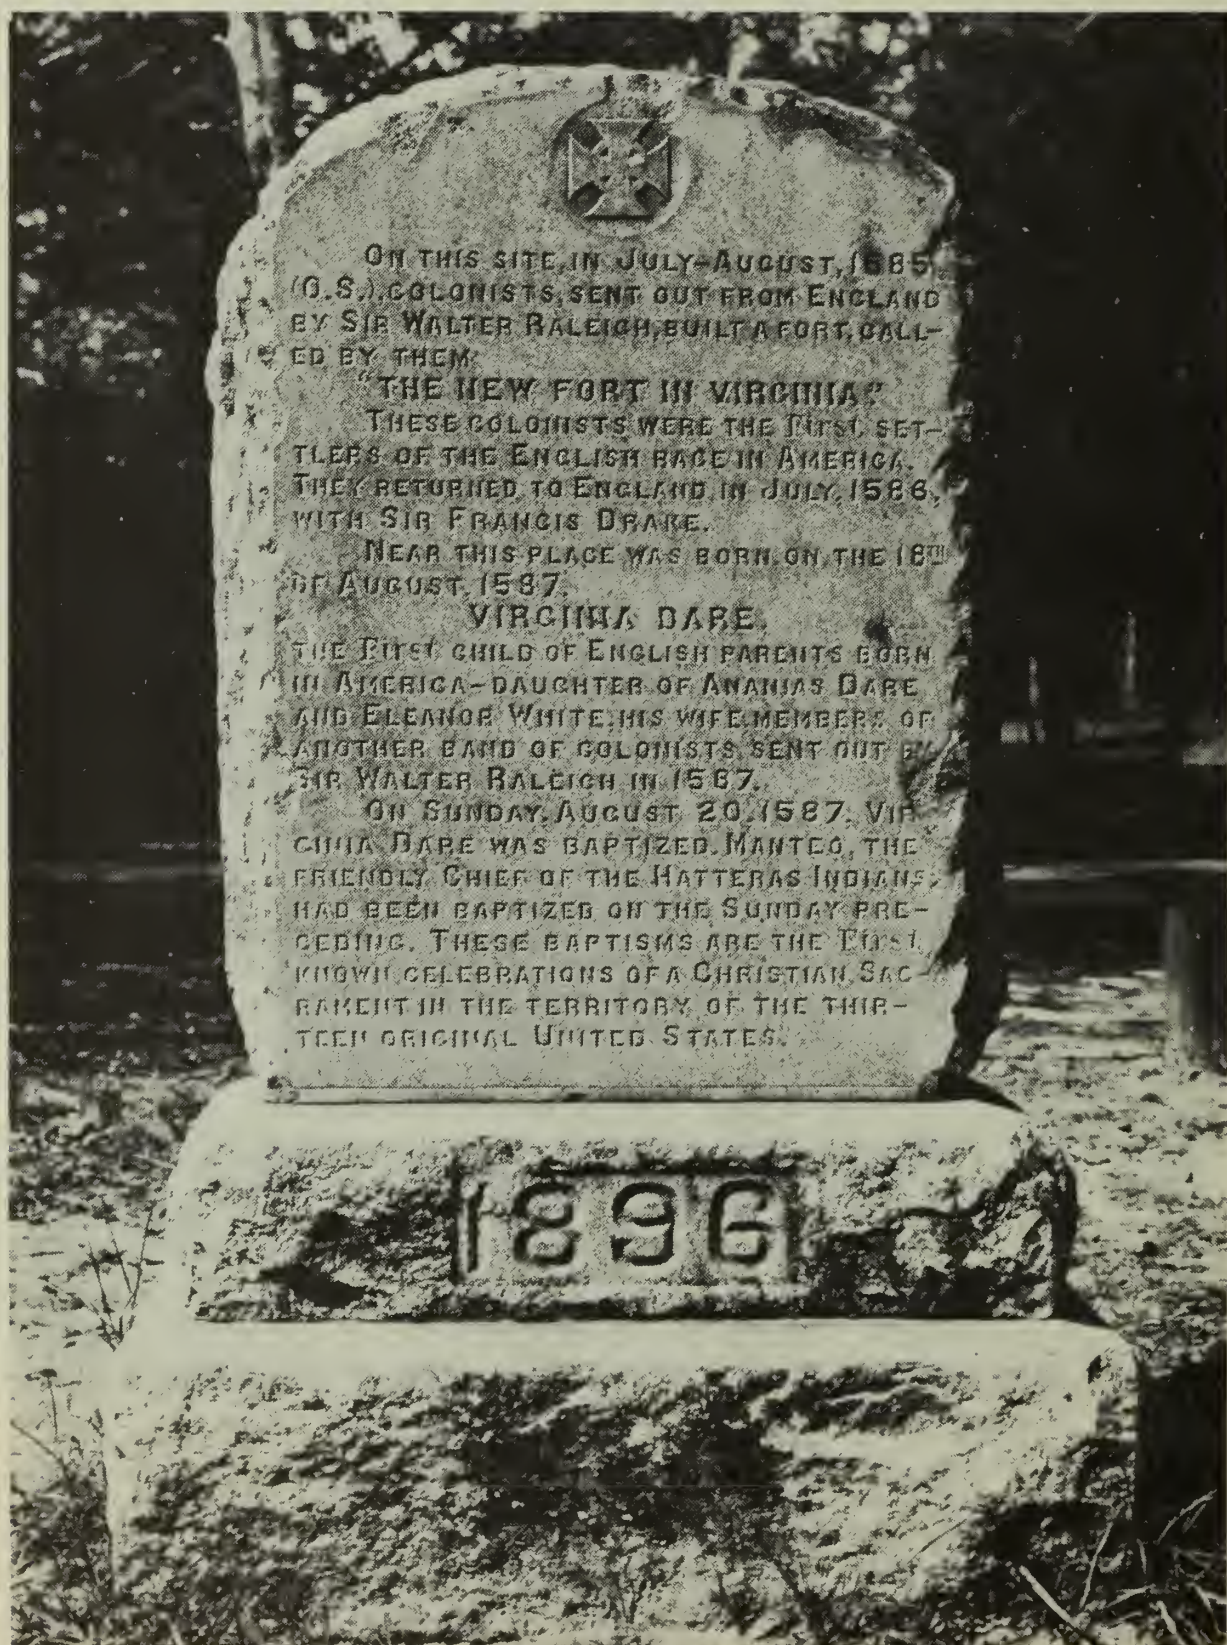 ON THIS SITE, IN JULY-AUGUST, 1585
(O.S.), COLONISTS, SENT OUT FROM ENGLAND
BY SIR WALTER RALEIGH, BUILT A FORT, CALL-
ED BY THEM
"THE NEW FORT IN VIRGINIA"
THESE COLONISTS WERE THE First SET-
TLERS OF THE ENGLISH RACE IN AMERICA.
THEY RETURNED TO ENGLAND IN JULY, 1586,
WITH SIR FRANCIS DRAKE.
NEAR THIS PLACE WAS BORN, ON THE 18TH
OF AUGUST, 1587,
VIRGINIA DARE,
THE First CHILD OF ENGLISH PARENTS BORN
IN AMERICA-DAUGHTER OF ANANIAS DARE
AND ELEANOR WHITE, HIS WIFE, MEMBERS OF
ANOTHER BAND OF COLONISTS, SENT OUT BY
SIR WALTER RALEIGH IN 1587.
ON SUNDAY, AUGUST 20, 1587, VIR-
GINIA DARE WAS BAPTIZED. MANTEO, THE
FRIENDLY CHIEF OF THE HATTERAS INDIANS,
HAD BEEN BAPTIZED ON THE SUNDAY PRE-
CEDING. THESE BAPTISMS ARE THE First
KNOWN CELEBRATIONS OF A CHRISTIAN SAC-
RAMENT IN THE TERRITORY OF THE THIR-
TEEN ORIGINAL UNITED STATES.
1896